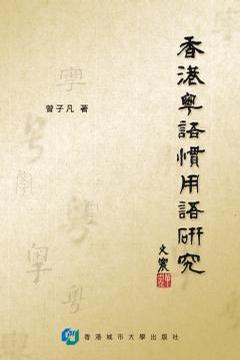 香港粵語慣用語研究
曾子凡 著
香港城市大學出版社